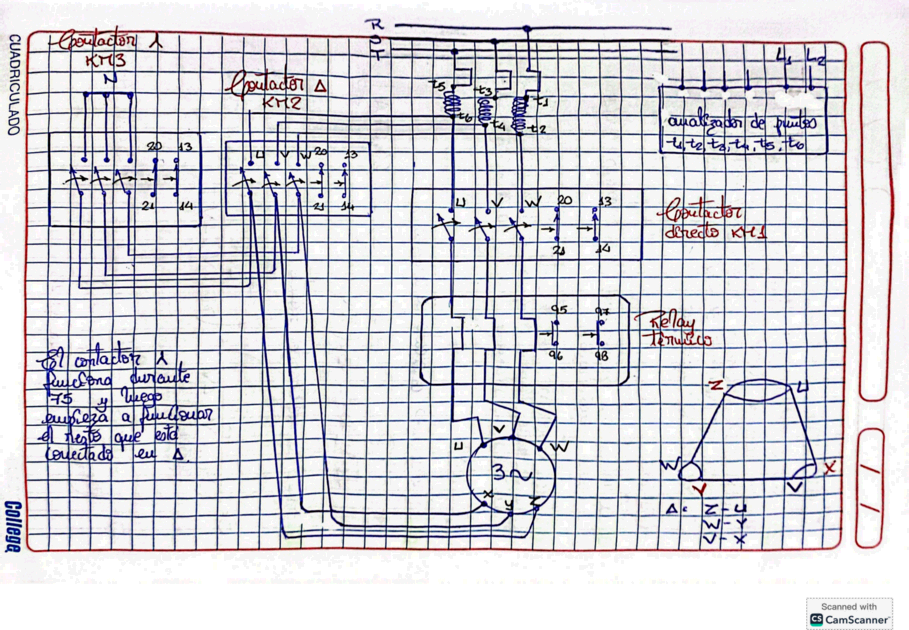 CUADRICULADO
College
Contactor λ
KM3
N
20 13
21 14
Contactor Δ
KM2
U V W 20 13
21 14
R
S
T
t5 t3 t1
t6 t4 t2
L1 L2
analizador de puntos
t1, t2, t3, t4, t5, t6
U V W 20 13
21 14
Contactor
directo KM1
95 97
96 98
Relay
térmico
El contactor λ
funciona durante
7S y luego
empieza a funcionar
el resto que está
conectado en Δ
U V W
3~
X Y Z
Z U
W X
Y V
Δ: Z-U
W-Y
V-X
Scanned with
CS CamScanner